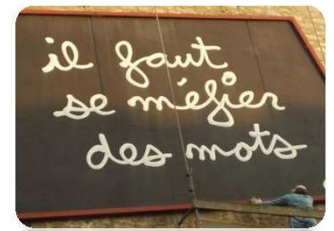 il faut
se méfier
des mots